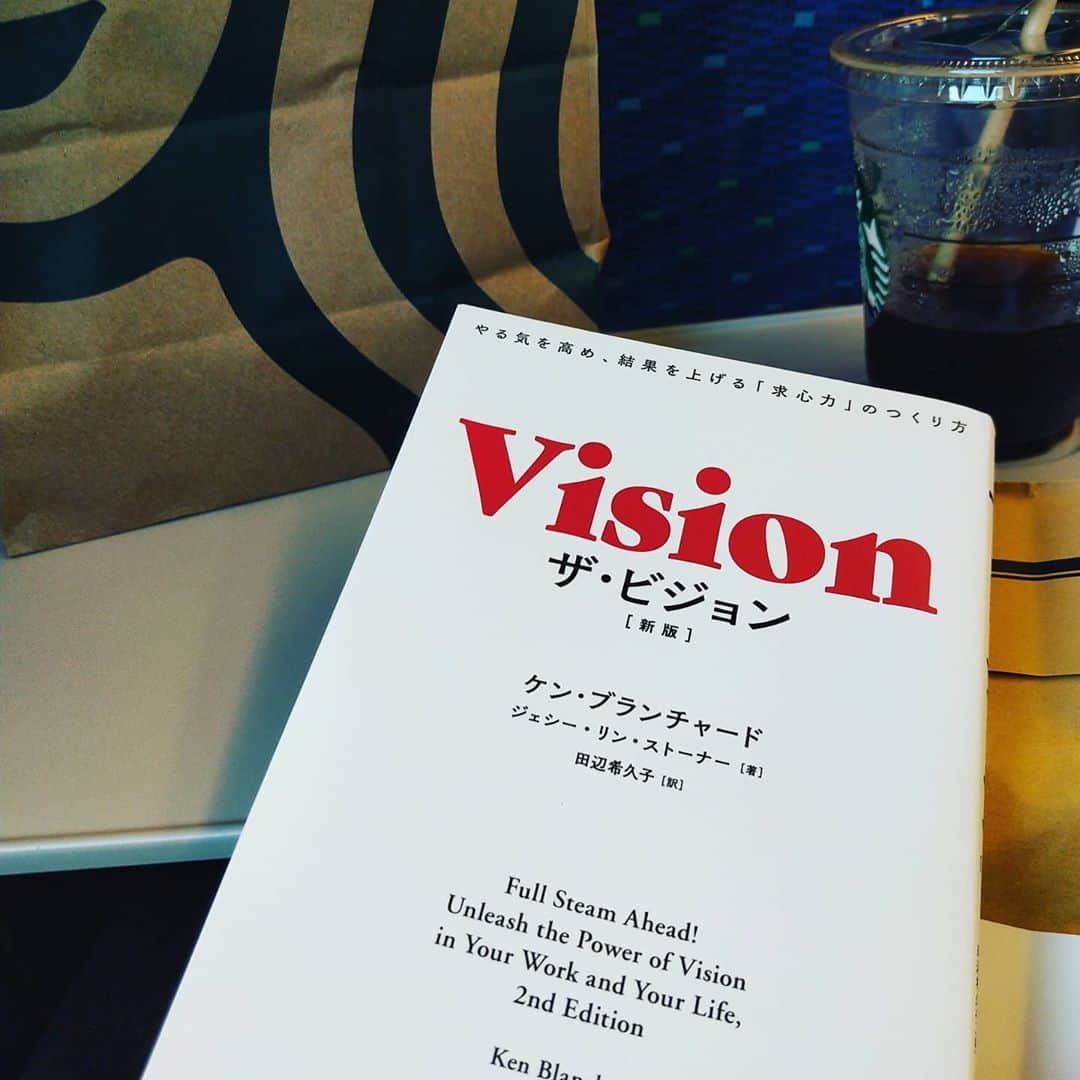 やる気を高め、結果を上げる「求心力」のつくり方
Vision
ザ・ビジョン
[新版]
ケン・ブランチャード
ジェシー・リン・ストーナー [著]
田辺希久子 [訳]
Full Steam Ahead!
Unleash the Power of Vision
in Your Work and Your Life,
2nd Edition
Ken